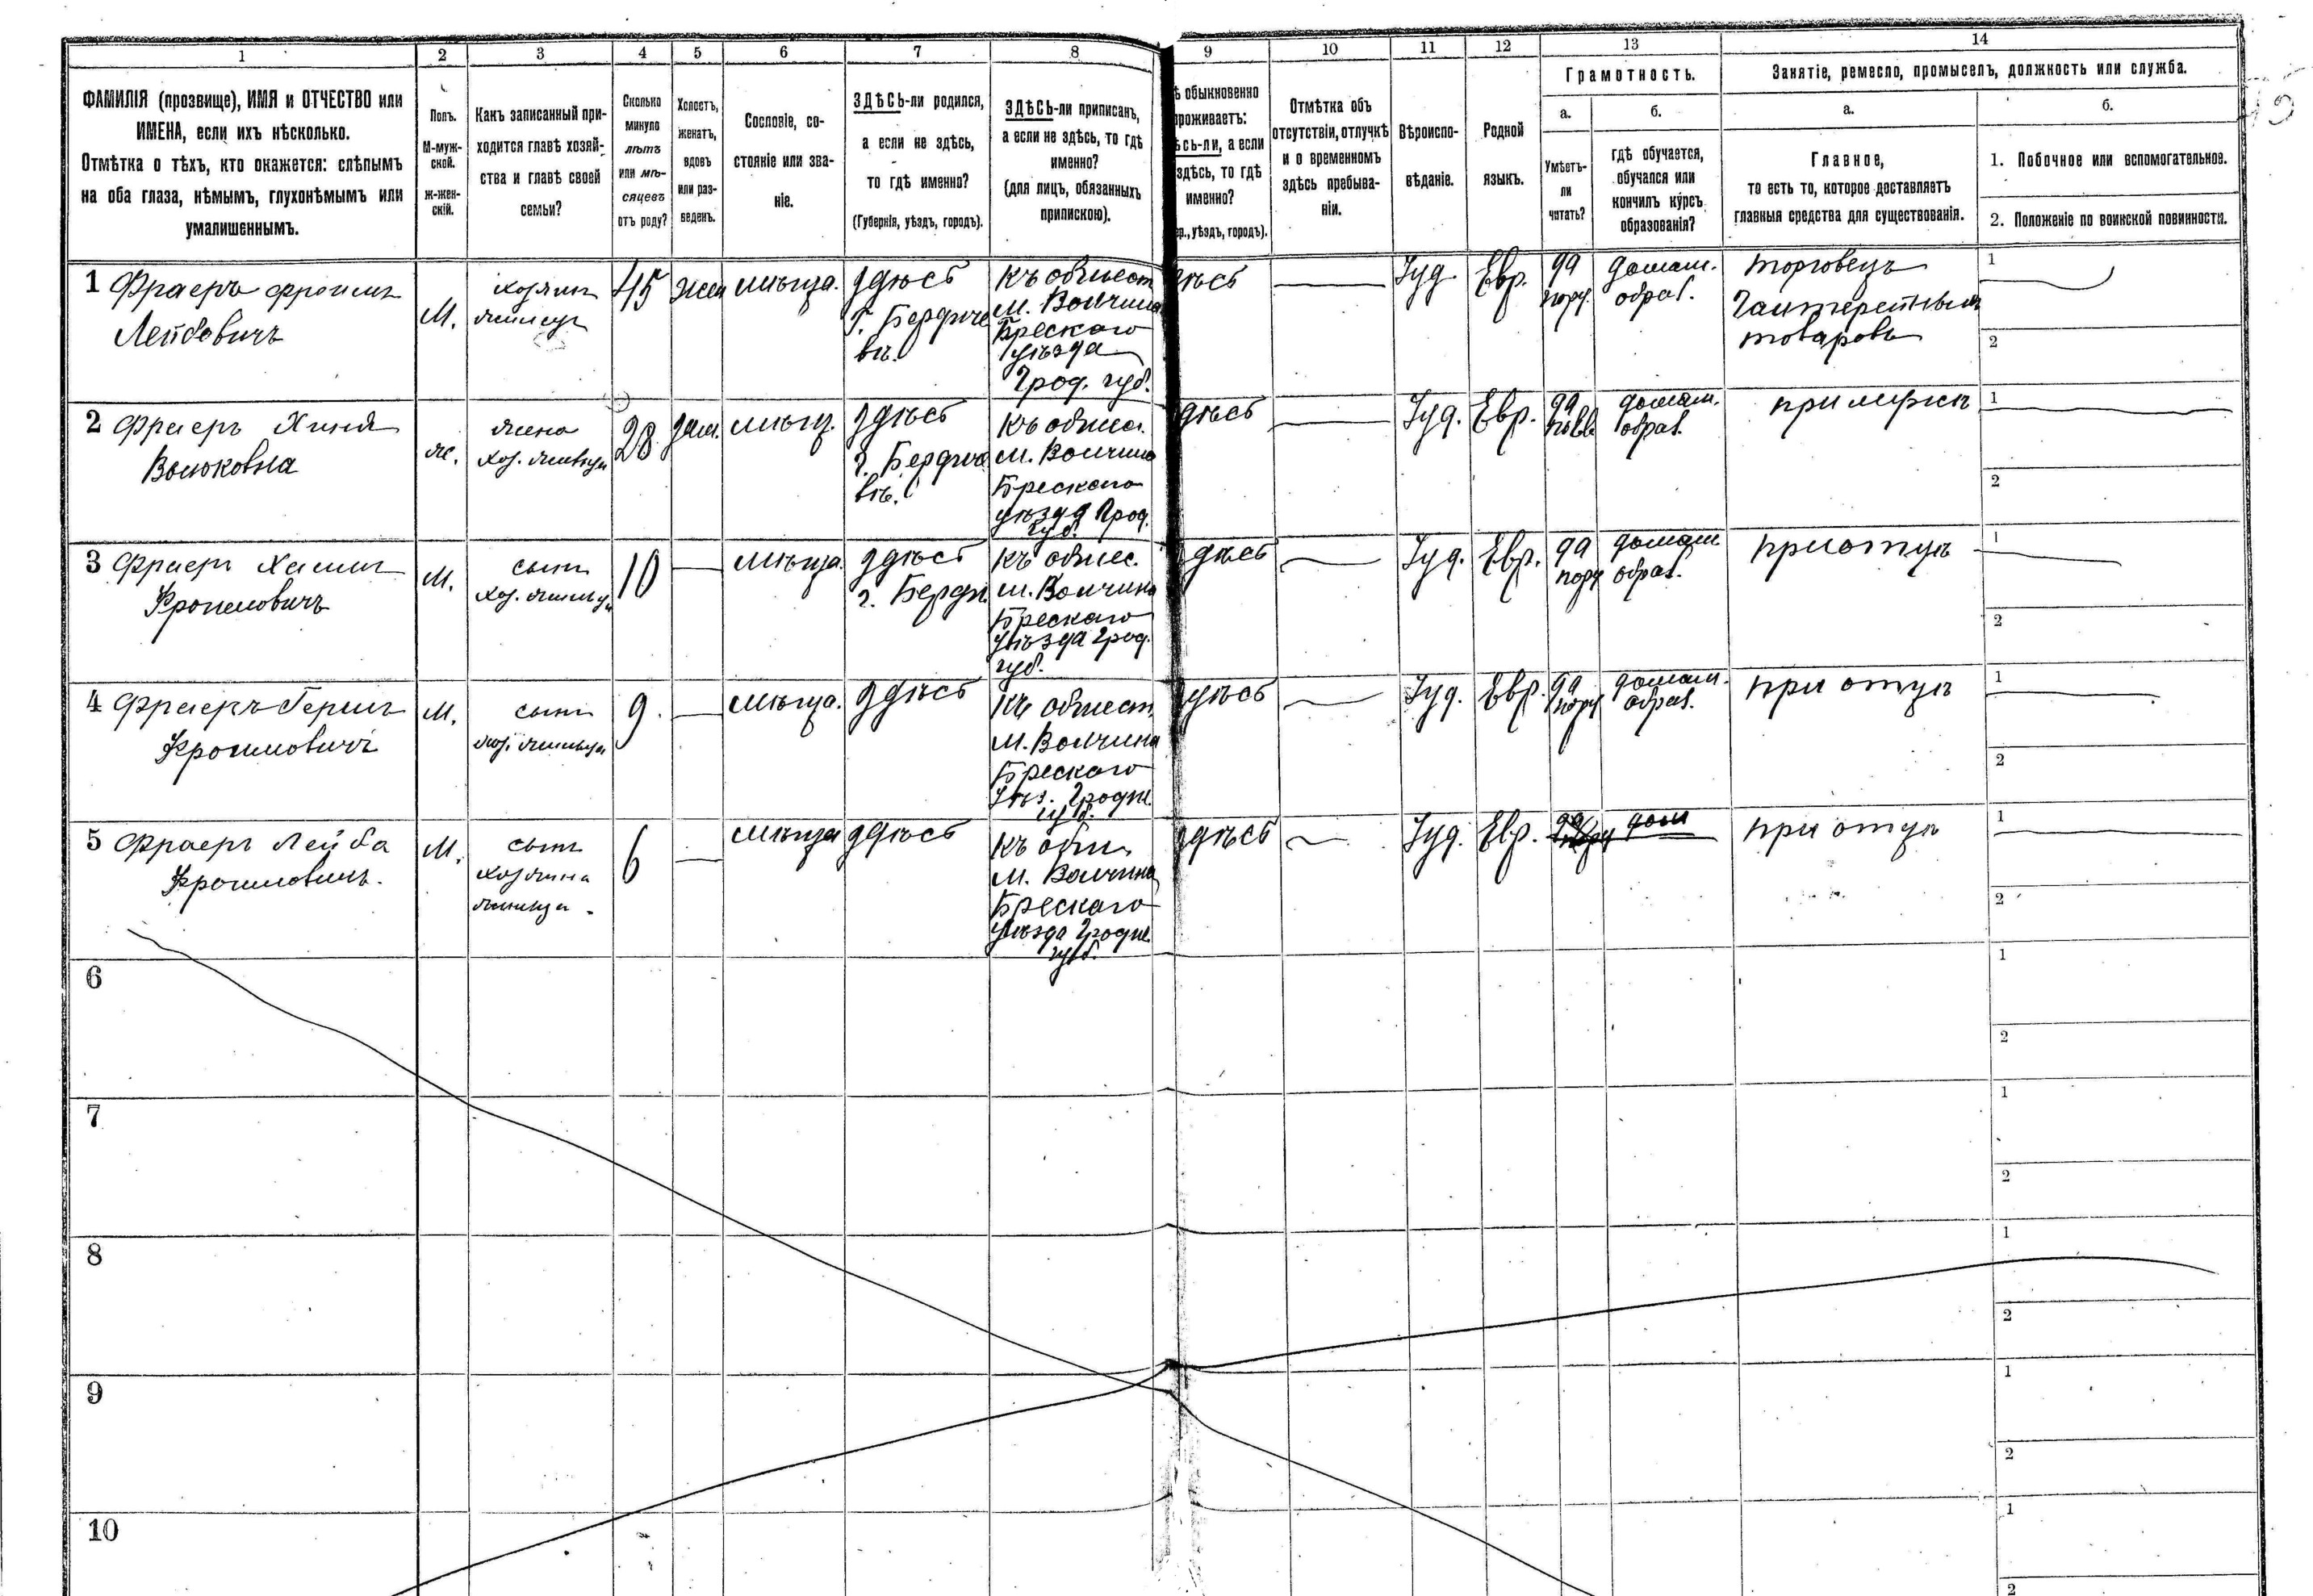 1 2 3 4 5 6 7 8 9 10 11 12 13 14
ФАМИЛІЯ (прозвище), ИМЯ и ОТЧЕСТВО или
ИМЕНА, если ихъ нѣсколько.
Отмѣтка о тѣхъ, кто окажется: слѣпымъ
на оба глаза, нѣмымъ, глухонѣмымъ или
умалишеннымъ.
Полъ.
М-муж-
ской.
ж-жен-
скій.
Какъ записанный при-
ходится главѣ хозяй-
ства и главѣ своей
семьи?
Сколько
минуло
лѣтъ
или мѣ-
сяцевъ
отъ роду?
Холостъ,
женатъ,
вдовъ
или раз-
веденъ.
Сословіе, со-
стояніе или зва-
ніе.
ЗДѢСЬ-ли родился,
а если не здѣсь,
то гдѣ именно?
(Губернія, уѣздъ, городъ).
ЗДѢСЬ-ли приписанъ,
а если не здѣсь, то гдѣ
именно?
(для лицъ, обязанныхъ
припискою).
ѣ обыкновенно
проживаетъ:
ѣсь-ли, а если
здѣсь, то гдѣ
именно?
ер., уѣздъ, городъ).
Отмѣтка объ
отсутствіи, отлучкѣ
и о временномъ
здѣсь пребыва-
ніи.
Вѣроиспо-
вѣданіе.
Родной
языкъ.
Грамотность.
а.
Умѣетъ-
ли
читать?
б.
гдѣ обучается,
обучался или
кончилъ курсъ
образованія?
Занятіе, ремесло, промыселъ, должность или служба.
а.
Главное,
то есть то, которое доставляетъ
главныя средства для существованія.
б.
1. Побочное или вспомогательное.
2. Положеніе по воинской повинности.
1 Фраеръ Фроимъ
Лейбовичъ
М.
хозяинъ
45
жен
мѣща.
здѣсь
Г. Бердиче
вѣ.
Къ обшест
м. Волчина
Брескаго
уѣзда
Грод. губ.
ѣсь
Іуд.
Евр.
да
домаш.
образ.
торговецъ
товаровъ
1
2
2 Фраеръ Хиня
Волковна
ж.
жена
28
зам.
мѣщ.
здѣсь
г. Бердиче
вѣ.
Къ общес.
м. Волчина
Брескаго
уѣзда Грод.
губ.
дѣсь
Іуд.
Евр.
да
домаш.
образ.
при мужѣ
1
2
3 Фраеръ Хаимъ
Фроимовичъ
М.
сынъ
10
мѣща.
здѣсь
г. Берди.
Къ общес.
м. Волчина
Брескаго
Уѣзда Грод.
губ.
дѣсь
Іуд.
Евр.
да
домаш
образ.
при отцѣ
1
2
4 Фраеръ Гершъ
Фроимовичъ
М.
сынъ
9.
мѣща.
здѣсь
Къ обшест.
м. Волчина
Брескаго
Уѣз. Гродн.
губ.
дѣсь
Іуд.
Евр.
да
домаш.
образ.
при отцѣ
1
2
5 Фраеръ Лейба
Фроимовичъ.
М.
сынъ
хозяина
6
мѣща
здѣсь
Къ общ.
м. Волчина
Брескаго
уѣзда Гродн.
губ.
здѣсь
Іуд.
Евр.
да
дом
при отцѣ
1
2
6
1
2
7
1
2
8
1
2
9
1
2
10
1
2